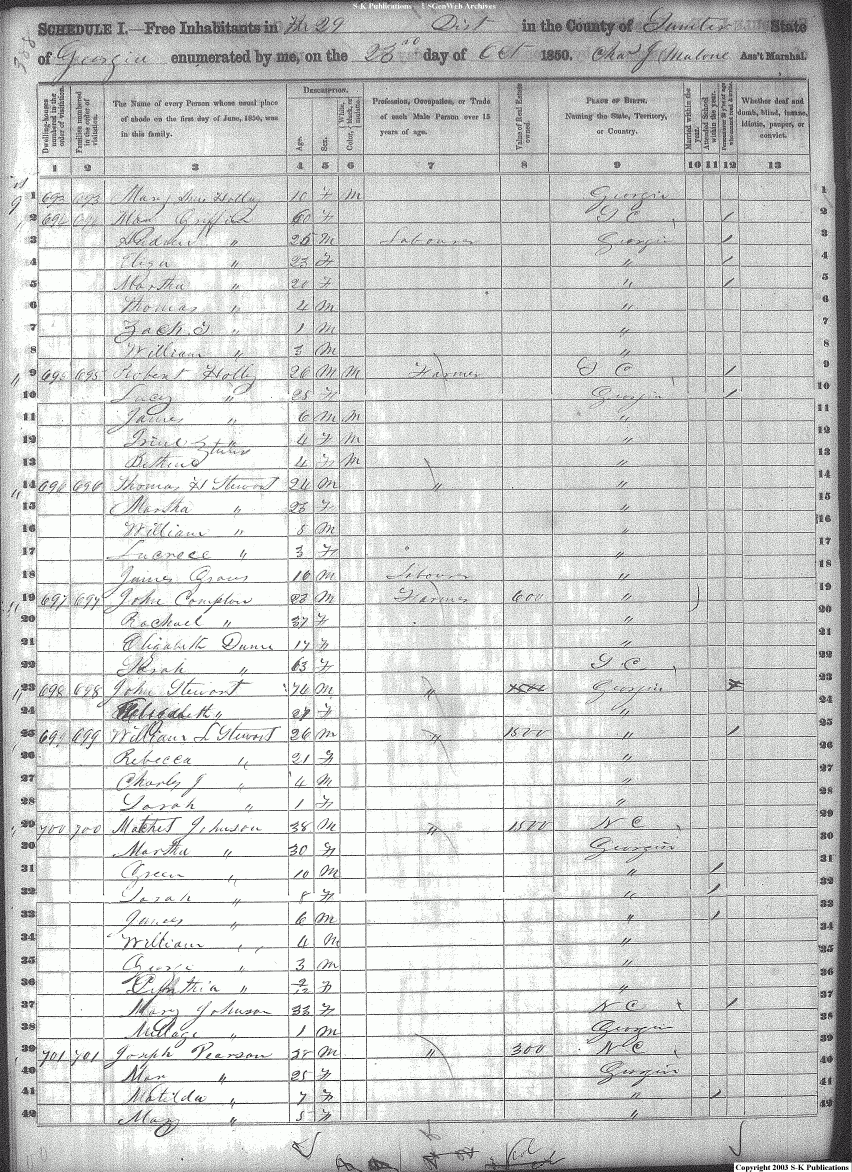 S-K Publications - USGenWeb Archives
SCHEDULE I.—Free Inhabitants in The 29 Dist in the County of Sumter State
of Georgia enumerated by me, on the 23rd day of Oct 1850. Chas J Malone Ass't Marshal.
Dwelling-houses numbered in the order of visitation. Families numbered in the order of visitation. The Name of every Person whose usual place of abode on the first day of June, 1850, was in this family. DESCRIPTION. Age. Sex. Color, White, black, or mulatto. Profession, Occupation, or Trade of each Male Person over 15 years of age. Value of Real Estate owned. PLACE OF BIRTH. Naming the State, Territory, or Country. Married within the year. Attended School within the year. Persons over 20 years of age who cannot read & write. Whether deaf and dumb, blind, insane, idiotic, pauper, or convict.
1 2 3 4 5 6 7 8 9 10 11 12 13
1 693 693 Mary Holley 10 F M Georgia 1
2 694 694 Mary Griffith 60 F S C / 2
3 " 25 M Labourer Georgia / 3
4 Eliza " 23 F " / 4
5 Martha " 20 F " / 5
6 Thomas " 4 M " 6
7 Zach T " 1 M " 7
8 William " 3 M " 8
9 695 695 Robert Holley 26 M M Farmer S C / 9
10 Lucy " 25 F Georgia / 10
11 James " 6 M M " 11
12 " 4 F M " 12
13 4 F M " 13
14 696 696 Thomas H Stewart 24 M " " 14
15 Martha " 23 F " 15
16 William " 5 M " 16
17 Lucrece " 3 F " 17
18 James 16 M Labourer " 18
19 697 697 John Compton 22 M Farmer 600 " 19
20 Rachael " 37 F " 20
21 Elizabeth Dunn 17 F " 21
22 Sarah " 63 F S C 22
23 698 698 John Stewart 74 M " Georgia 23
24 Elizabeth " 27 F " 24
25 699 699 William L Stewart 26 M " 1500 " / 25
26 Rebecca " 21 F " 26
27 Charles J " 4 M " 27
28 Sarah " 1 F " 28
29 700 700 Johnson 38 M " 1500 N C 29
30 Martha " 30 F Georgia 30
31 Green " 10 M " / 31
32 Sarah " 8 F " / 32
33 James " 6 M " / 33
34 William " 4 M " 34
35 George " 3 M " 35
36 Cynthia " F " 36
37 Mary Johnson 33 F N C / 37
38 Millage " 1 M Georgia 38
39 701 701 Joseph Pearson 28 M " 300 N C 39
40 Mary " 25 F Georgia 40
41 Matilda " 7 F " / 41
42 Mary " 5 F " 42
Copyright 2003 S-K Publications